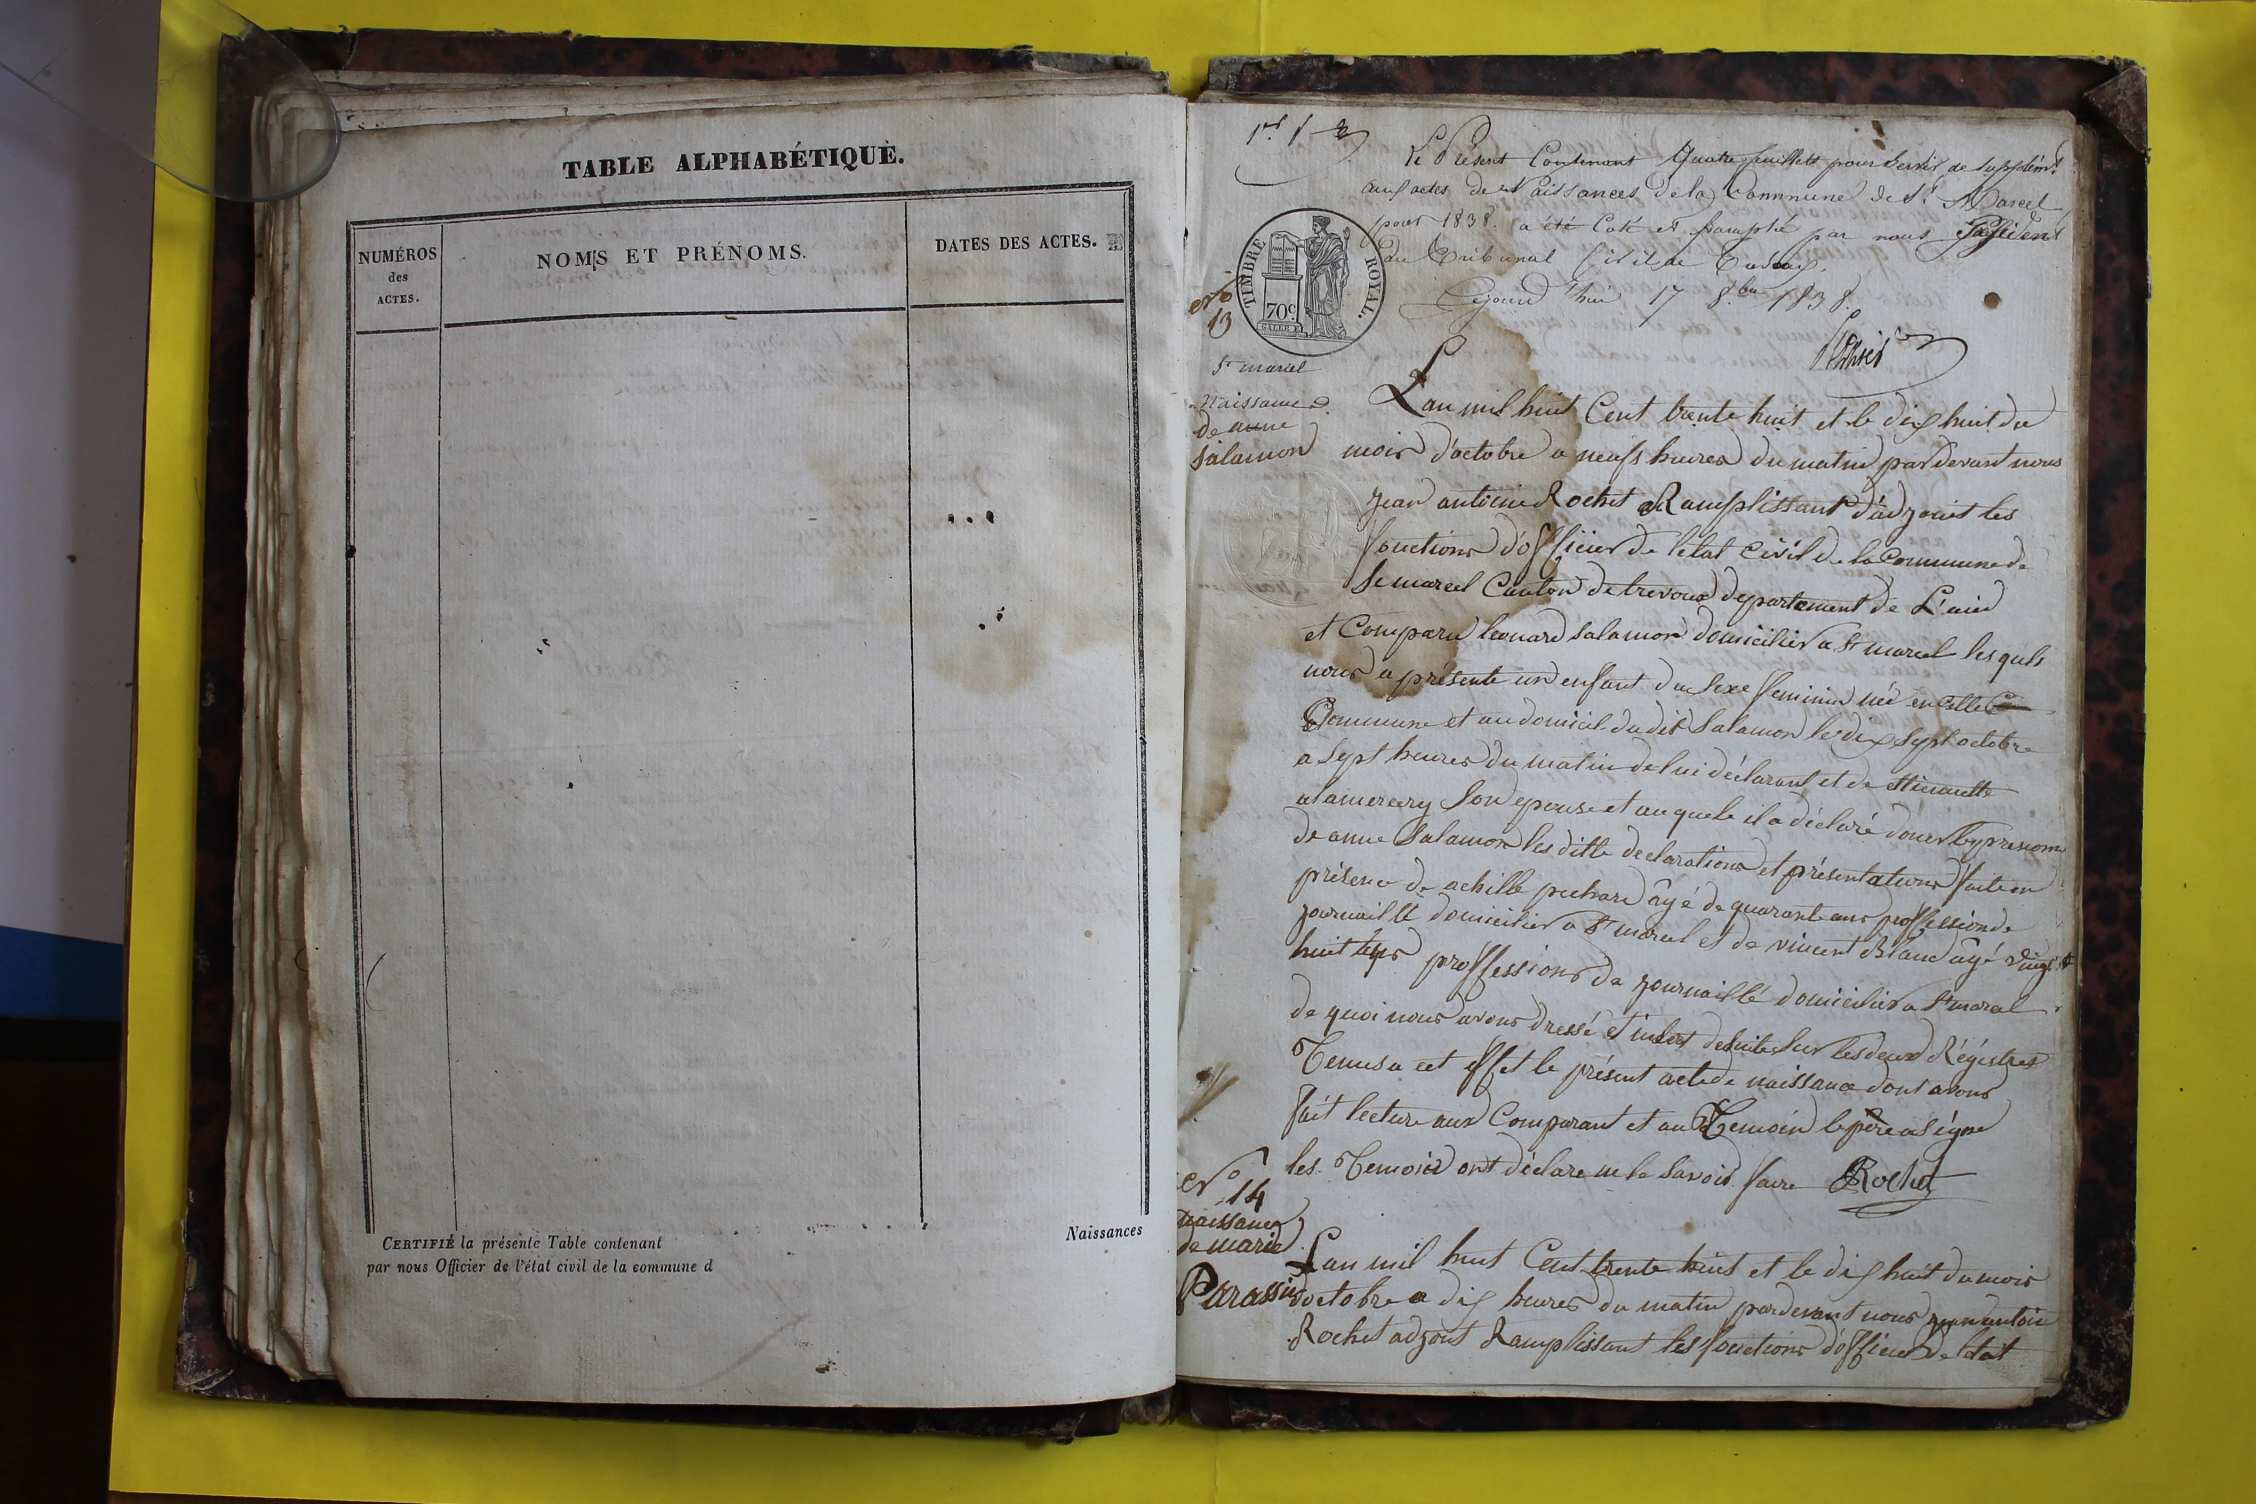 TABLE ALPHABÉTIQUE.
NUMÉROS
des
ACTES.
NOMS ET PRÉNOMS.
DATES DES ACTES.
CERTIFIÉ la présente Table contenant
par nous Officier de l'état civil de la commune d
Naissances
Le Présent Contenant Quatre feuillets pour servir de supplémt
aux actes de Naissances de la Commune de St Marcel
pour 1838. a été Coté et paraphé par nous Président
du Tribunal Civil de
Cejourd'hui 17 8.bre 1838.
TIMBRE ROYAL.
70c.
No
13
St marcel
Naissance
de anne
Salamon
Lan mil huit Cent trente huit et le dix huit du
mois d'octobre a neufs heures du matin par devant nous
jean antoine Rochet Ramplissant d'adjoint les
fonctions d'officier de l'état civil de la Commune de
St marcel Canton de trevoux departement de L'ain
et Comparu leonard Salamon domicilier a St marcel lesquls
nous a présente un enfant du Sexe feminin née en Cette
Commune et au domicil dudit Salamon le dix Sept octobre
a Sept heures du matin de lui déclarant et de
alamercery Son epouse et au quele il a déclaré doner les prenoms
de anne Salamon les ditte declarations et présentations faite en
présence de achille âgé de quarante ans proffession de
journaillé domicilier a St marcel et de vincent Blanc âgé vingt
huit ans proffessions de journaillé domicilier a St marcel
de quoi nous avons dressé et insert de suite Sur les deux Régistres
Tenus a cet effet le présent acte de naissance dont avons
fait lecture aux Comparant et au Temoin le père a Signe
les Temoin ont déclare ne le Savoir faire Rochet
No
14
naissance
de marie
Parassin
Lan mil huit Cent trente huit et le dix huit du mois
doctobre a dix heures du matin pardevant nous jean antoine
Rochet adjont Ramplissant les fonctions d'officier de letat